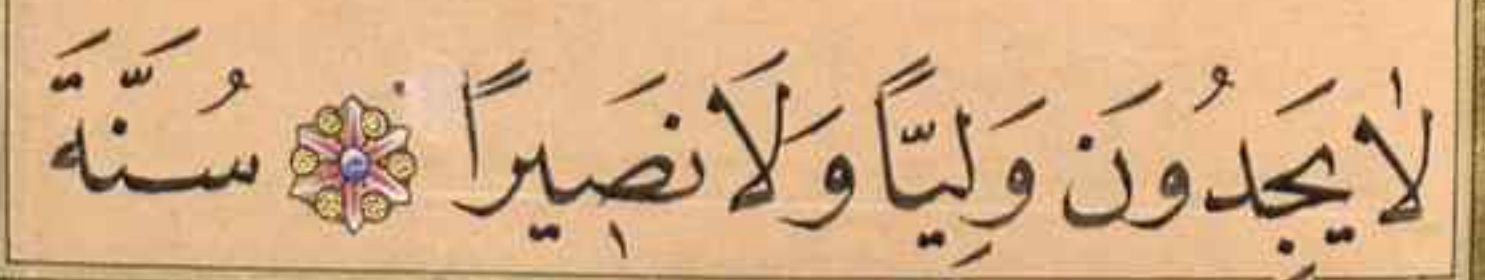 لَا يَجِدُونَ وَلِيًّا وَلَا نَصِيرًا سُنَّةَ